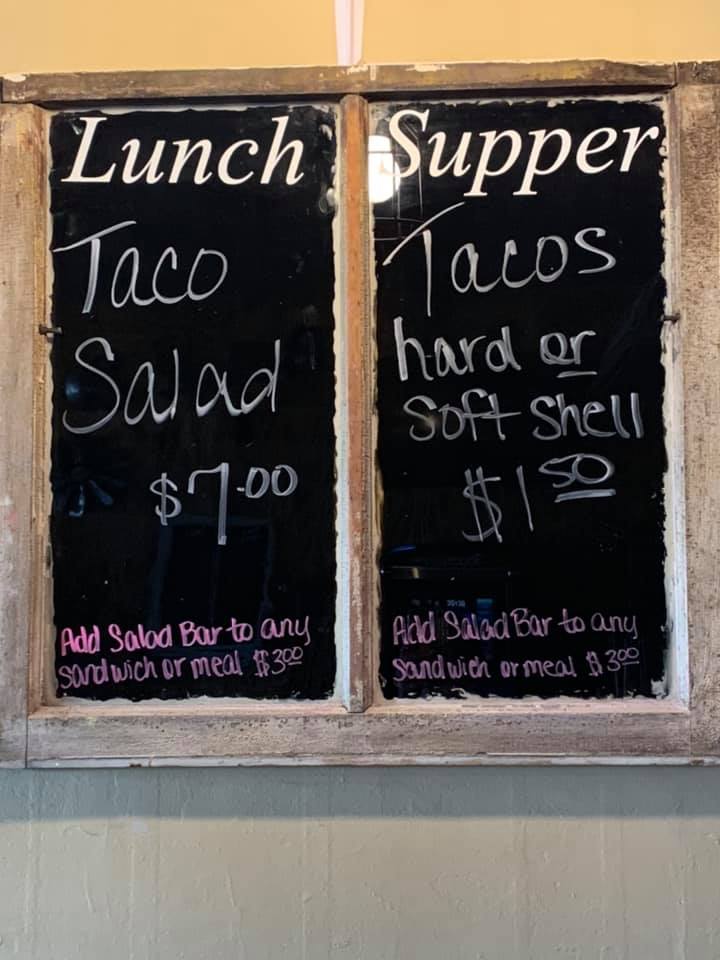 Lunch
Taco
Salad
$7.00
Add Salad Bar to any
sandwich or meal $3.00
Supper
Tacos
hard or
Soft Shell
$1 50
Add Salad Bar to any
sandwich or meal $3.00